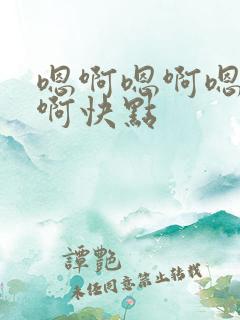 嗯啊嗯啊嗯
啊快點
譚艷
未任同意禁止转载